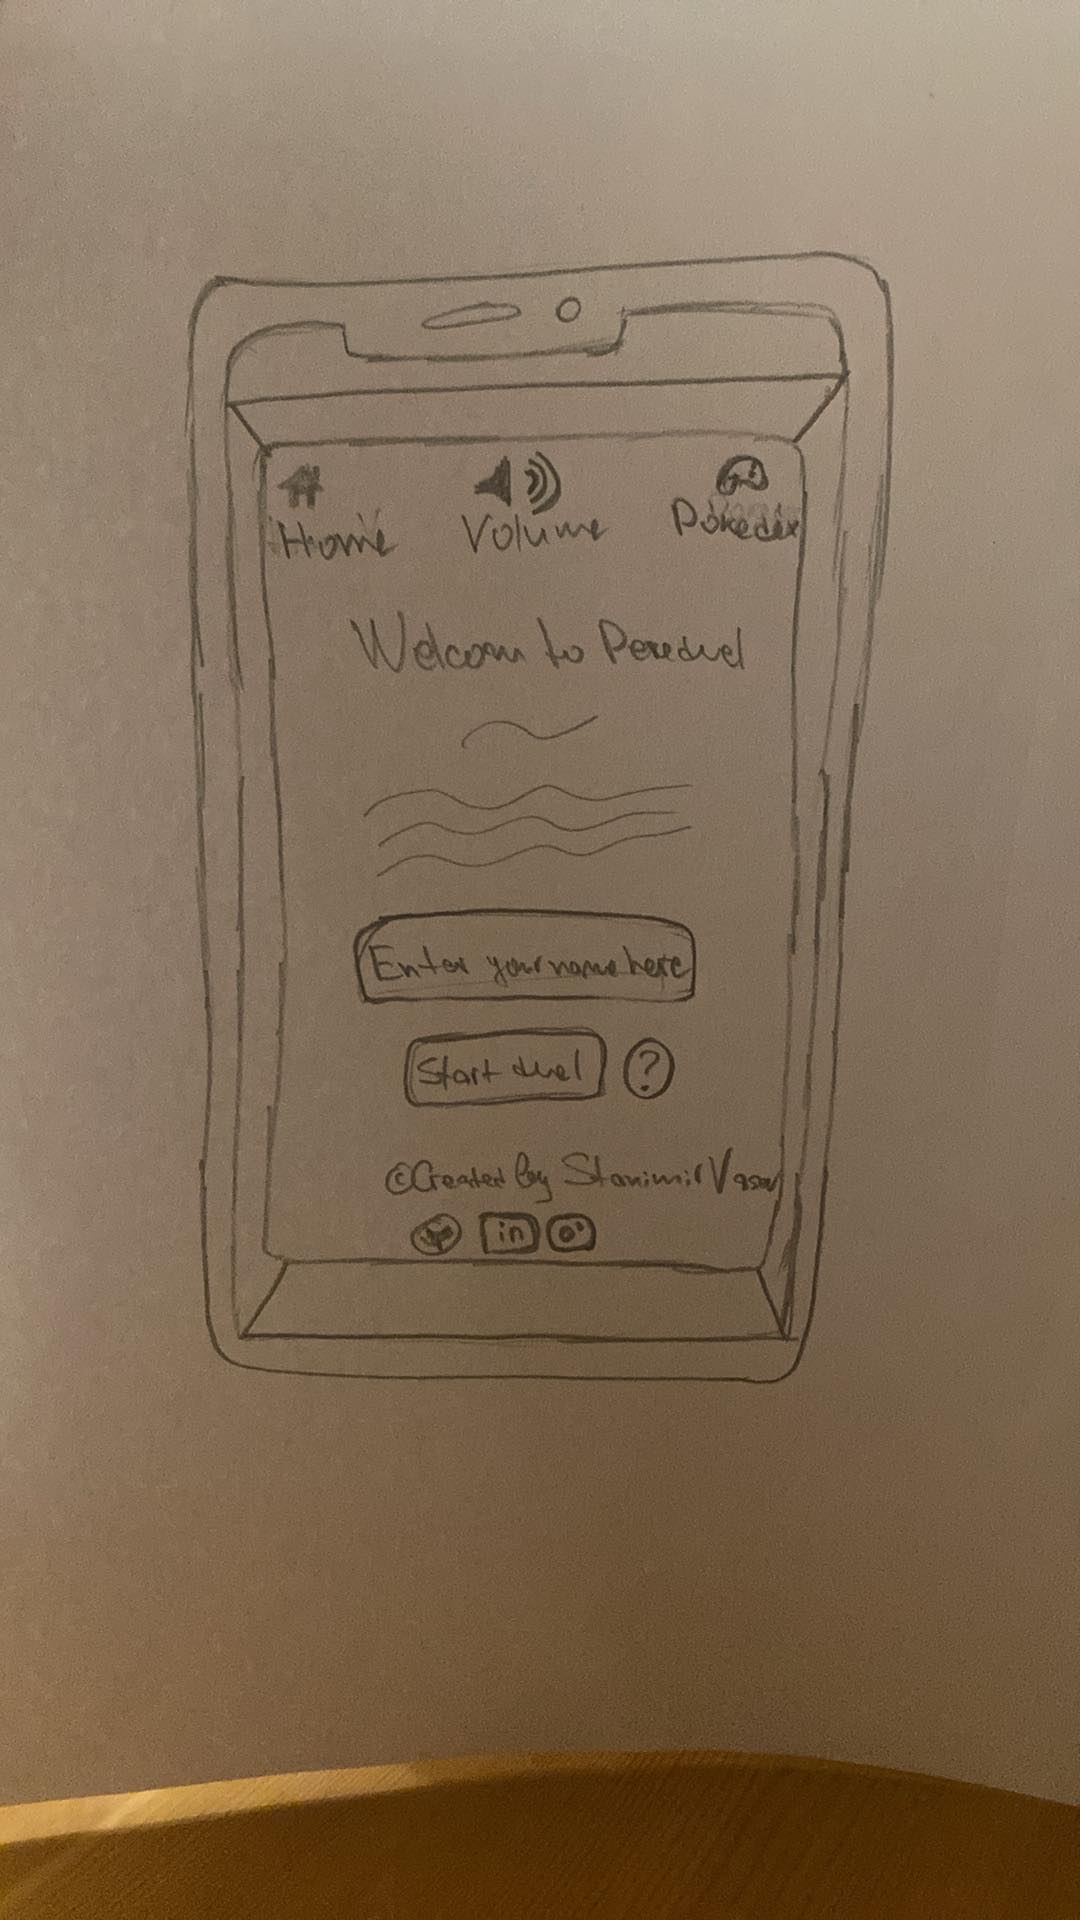 Home Volume Pokedex
Welcom to Pokeduel
Enter your name here
Start duel ?
©Created by Stanimir Vasev
in